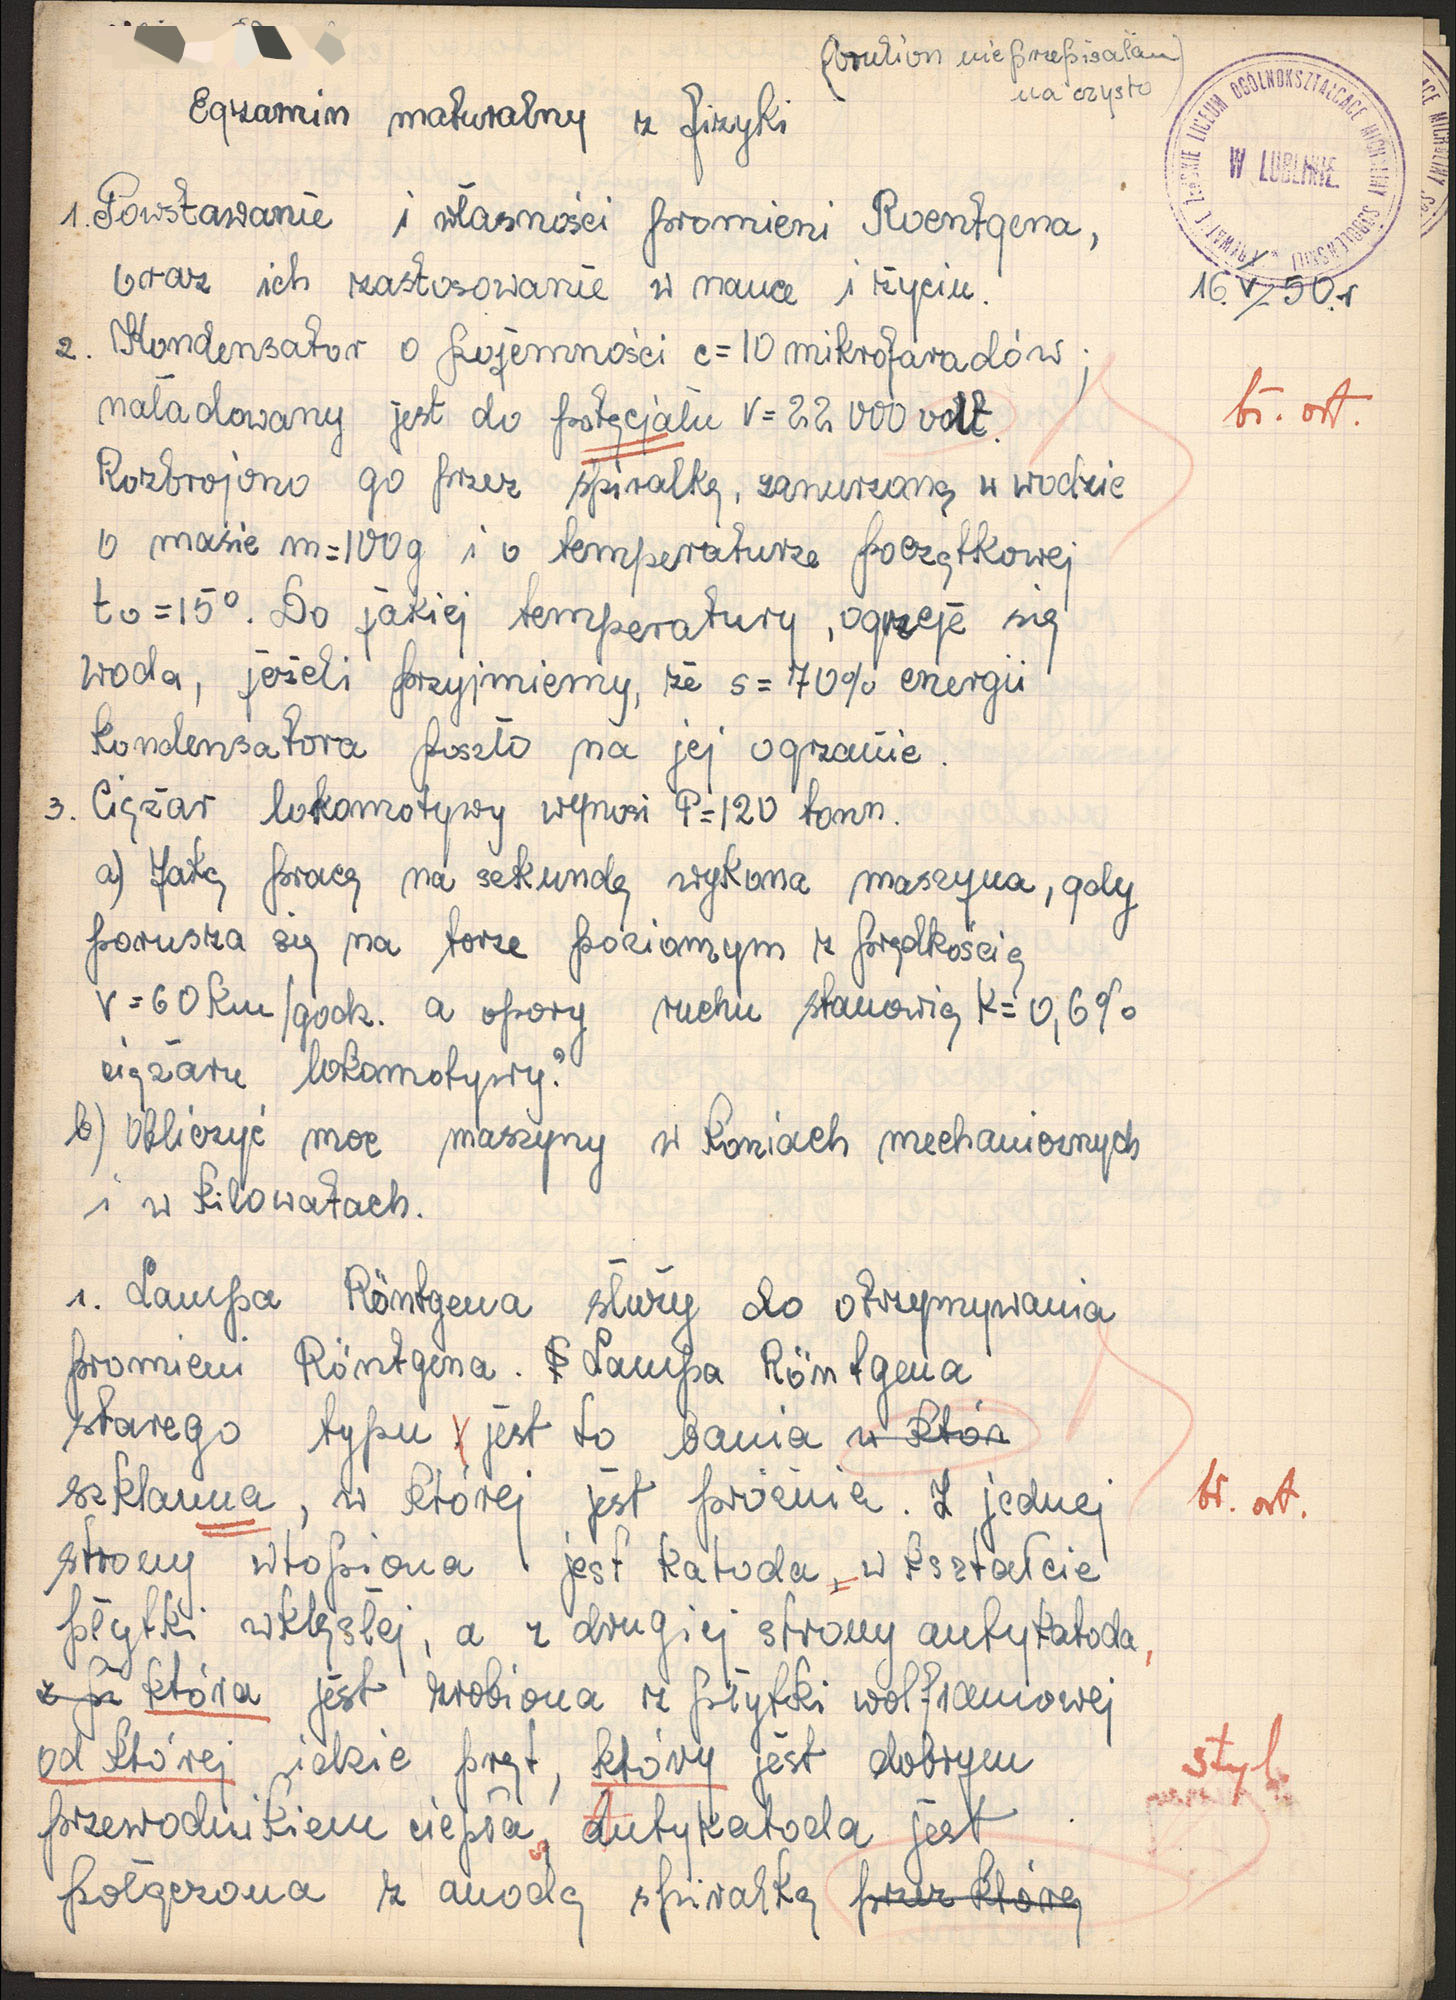 (brulion nie przepisałam
na czysto)
Egzamin maturalny z fizyki
W LUBLINIE.
1. Powstawanie i własności promieni Roentgena,
oraz ich zastosowanie w nauce i życiu.
16.V/50.r
2. Kondensator o pojemności c=10 mikrofaradów;
naładowany jest do potęcjału V=22 000 volt.
bł. ort.
Rozbrojono go przez spiralkę, zanurzoną w wodzie
o masie m=100g i o temperaturze początkowej
to=15°. Do jakiej temperatury, ogrzeje się
woda, jeżeli przyjmiemy, że s=70% energii
kondensatora poszło na jej ogrzanie.
3. Ciężar lokomotywy wynosi P=120 tonn.
a) Jaką pracę na sekundę wykona maszyna, gdy
porusza się na torze poziomym z prędkością
v=60km/godz. a opory ruchu stanowią k=0,6%
ciężaru lokomotywy?
b) Obliczyć moc maszyny w koniach mechanicznych
i w kilowatach.
1. Lampa Röntgena służy do otrzymywania
promieni Röntgena. Lampa Röntgena
starego typu jest to bania w któr
szklanna, w której jest próżnia. Z jednej
bł. ort.
strony wtopiona jest katoda, w kształcie
płytki wklęsłej, a z drugiej strony antykatoda,
która jest zrobiona z płytki wolframowej
od której idzie pręt, który jest dobrym
styl.
przewodnikiem ciepła. Antykatoda jest
połączona z anodą spiralką przez którą